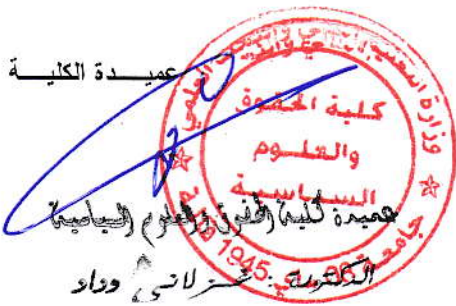 عميدة الكلية
وزارة التعليم العالي والبحث العلمي
كلية الحقوق
والعلوم
السياسية
جامعة 08 ماي 1945 قالمة
عميدة كلية الحقوق والعلوم السياسية
الدكتورة: غزلاني وداد